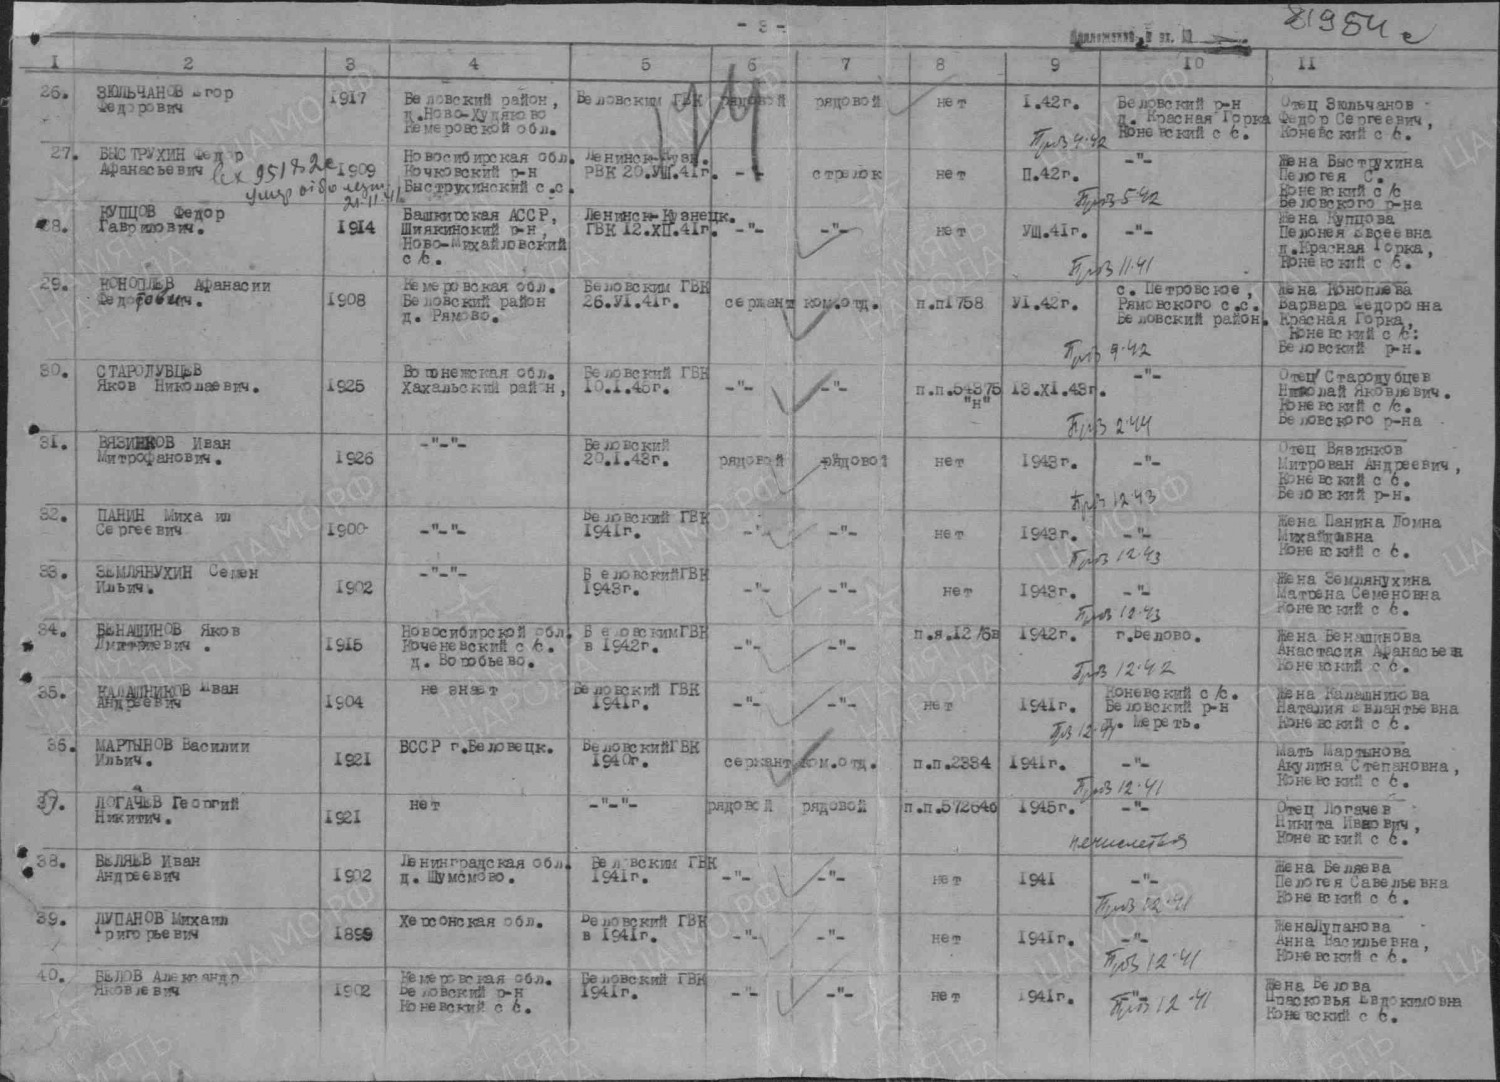 - 3 -
81984 с
1 2 3 4 5 6 7 8 9 10 11
26. ЗЮЛЬЧАНОВ Егор 1917 Беловский район, Беловским ГВК рядовой рядовой нет 1.42г. Беловский р-н Отец Зюльчанов
Федорович д.Ново-Худяково д. Красная Горка Федор Сергеевич,
Кемеровской обл. Коневский с/с. Коневский с/с.
Проп 4.42
27. БЫСТРУХИН Федор Новосибирская обл. Ленинск-Кузн. -"- Жена Быструхина
Афанасьевич 1909 Кочковский р-н РВК 20.УШ.41г. -"- стрелок нет П.42г. Пелогея С.
вх 95182с Быструхинский с.с. Коневский с/с
умер от болезни Проп 5.42 Беловского р-на
21.11.41.
28. КУПЦОВ Федор Башкирская АССР, Ленинск-Кузнецк. Жена Купцова
Гаврилович. 1914 Шиякинский р-н, ГВК 12.ХП.41г. -"- -"- нет УШ.41г. -"- Пелонея Евсеевна
Ново-Михайловский д.Красная Горка,
с/с. Проп 11.41 Коневский с/с.
29. КОНОПЛЕВ Афанасии Кемеровская обл. Беловским ГВК с. Петровское, Жена Коноплева
Федорович. 1908 Беловский район 26.У1.41г. сержант ком.отд. п.п1758 У1.42г. Рямовского с.с. Варвара Федоровна
д. Рямово. Беловский район. Красная Горка,
Коневский с/с:
Проп 9.42 Беловский р-н.
30. СТАРОДУБЦЕВ Воронежская обл. Беловский ГВК -"- Отец Стародубцев
Яков Николаевич. 1925 Хахальский район, 10.1.43г. -"- -"- п.п.54375 13.Х1.43г. Николай Яковлевич.
"н" Коневский с/с.
Проп 2.44 Беловского р-на
31. ВЯЗИНКОВ Иван -"-"- Беловский Отец Вязинков
Митрофанович. 1926 20.1.43г. рядовой рядовой нет 1943г. -"- Митрован Андреевич,
Коневский с/с.
Проп 12.43 Беловский р-н.
32. ПАНИН Михаил Беловский ГВК Жена Панина Домна
Сергеевич 1900 -"-"- 1941г. -"- -"- нет 1943г. -"- Михайловна
Проп 12.43 Коневский с/с.
33. ЗЕМЛЯНУХИН Семен -"-"- БеловскийГВК Жена Землянухина
Ильич. 1902 1943г. -"- -"- нет 1943г. -"- Матрена Семеновна
Проп 12.43 Коневский с/с.
34. БЕНАШИНОВ Яков Новосибирской обл. БеловскимГВК п.я.12/6в 1942г. г.Белово. Жена Бенашинова
Дмитриевич. 1915 Коченевский с/с. в 1942г. -"- -"- Анастасия Афанасьев
д. Воробьево. Проп 12.42 Коневский с/с.
35. КАЛАШНИКОВ Иван не знает Беловский ГВК Коневский с/с. Жена Калашникова
Андреевич 1904 1941г. -"- -"- нет 1941г. Беловский р-н Наталия Евлантьевна
Проп 12.41 д. Мереть. Коневский с/с.
36. МАРТЫНОВ Василии БССР г.Беловецк. БеловскийГВК Мать Мартынова
Ильич. 1921 1940г. сержант ком.отд. п.п.2334 1941г. -"- Акулина Степановна,
Проп 12.41 Коневский с/с.
37. ЛОГАЧЕВ Георгий нет -"-"- рядовой рядовой п.п.57264б 1945г. -"- Отец Логачев
Никитич. 1921 Никита Иванович,
нечислется Коневский с/с.
38. БЕЛЯЕВ Иван Ленинградская обл. Беловским ГВК Жена Беляева
Андреевич 1902 д. Шумомово. 1941г. -"- -"- нет 1941 -"- Пелогея Савельевна
Проп 12.41 Коневский с/с.
39. ЛУПАНОВ Михаил Херсонская обл. Беловский ГВК ЖенаЛупанова
Григорьевич 1899 в 1941г. -"- -"- нет 1941г. -"- Анна Васильевна,
Проп 12.41 Коневский с/с.
40. БЕЛОВ Александр Кемеровская обл. Беловский ГВК Жена Белова
Яковлевич 1902 Беловский р-н 1941г. -"- -"- нет 1941г. -"- Прасковья Евдокимовна
Коневский с/с. Проп 12.41 Коневский с/с.